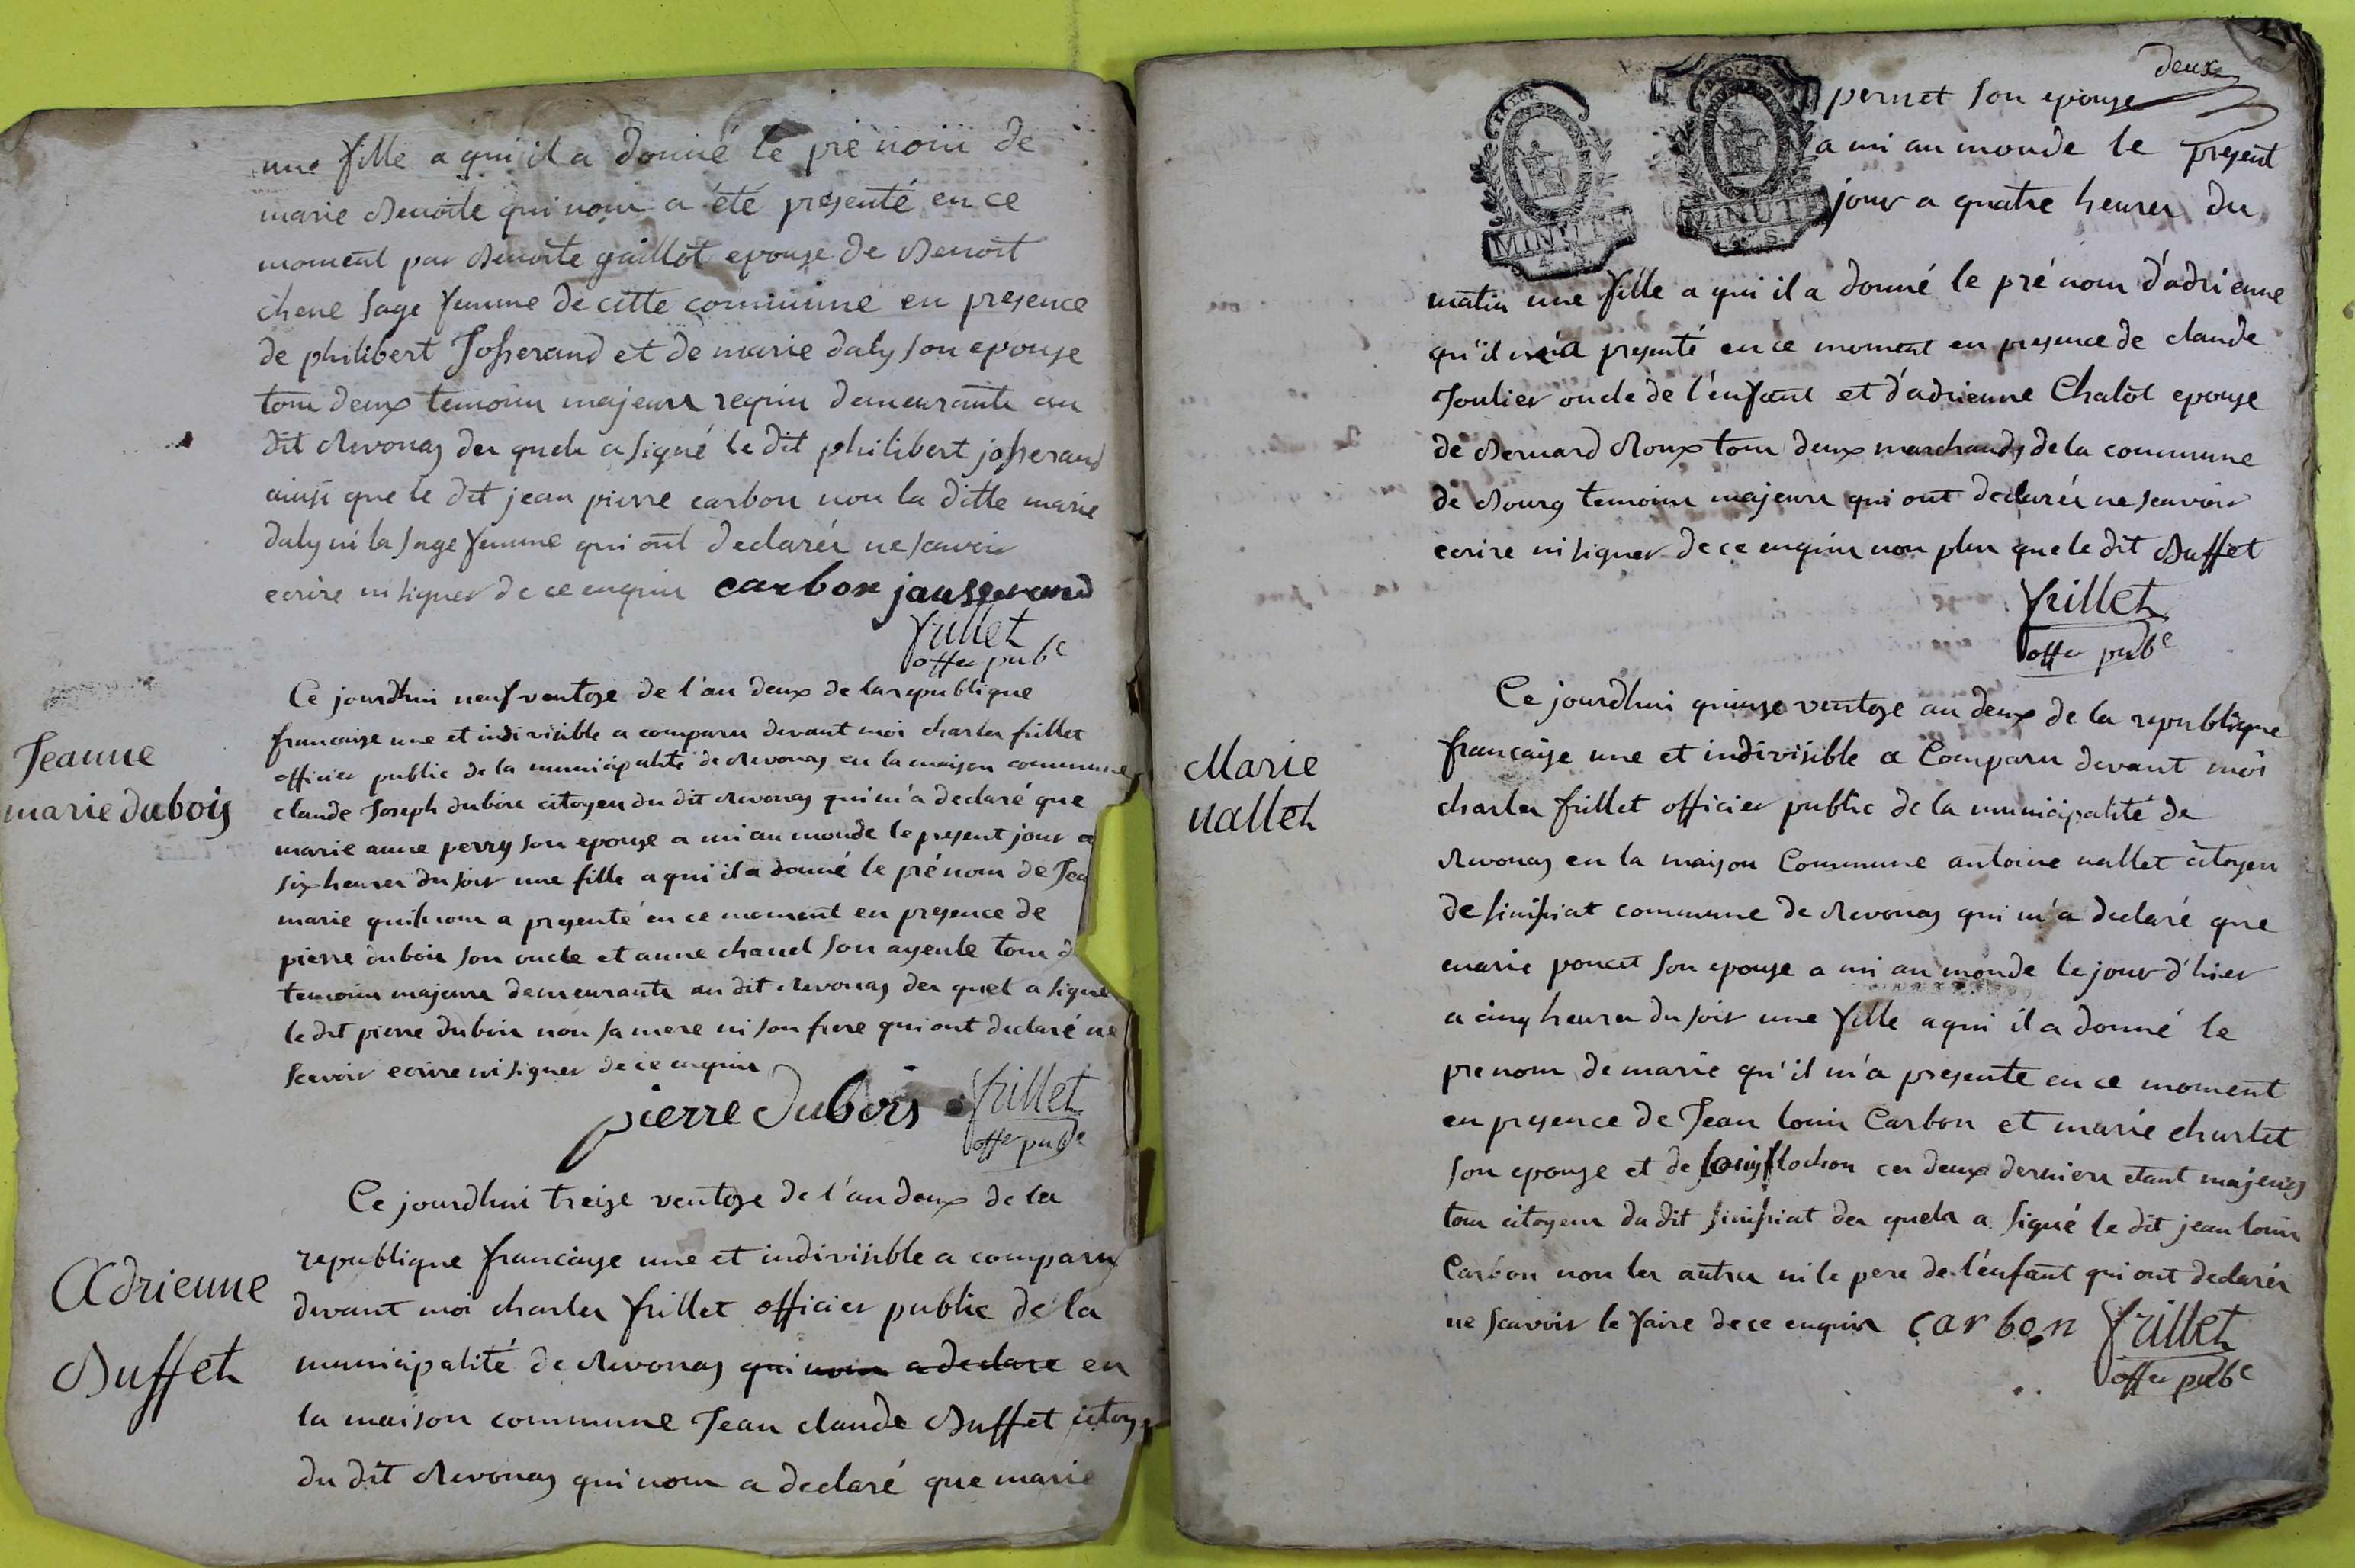 une fille a qui il a donné le pré nom de
marie Benoite qui nous a été presenté en ce
moment par Benoite gaillot epouse de Benoit
chene sage femme de cette commune en presence
de philibert Josserand et de marie daly son epouse
tous deux temoins majeurs requis demeurants au
dit Revonas des quels a signé le dit philibert josserand
ainsi que le dit jean pierre carbon non la ditte marie
daly ni la sage femme qui ont declarés ne scavoir
ecrire ni signer de ce enquis carbon jausserand
frillet
offer pubc
Jeanne
marie dubois
Ce jourdhui neuf ventose de l'an deux de la republique
francaise une et indivisible a comparu devant moi charles frillet
officier public de la municipalité de Revonas en la maison commune
claude Joseph dubois citoyen du dit Revonas qui m'a declaré que
marie anne perry son epouse a mi au monde le present jour a
six heures du soir une fille a qui il a donné le pré nom de Jea
marie quil nous a presenté en ce moment en presence de
pierre dubois son oncle et anne chanel son ayeule tous d
temoins majeurs demeurants au dit Revonas des quel a signé
le dit pierre dubois non sa mere ni son frere qui ont declaré ne
scavoir ecrire ni signer de ce enquis
pierre dubois frillet
offer pubc
Adrienne
Buffet
Ce jourdhui treize ventose de l'an deux de la
republique francaise une et indivisible a comparu
devant moi charles frillet officier public de la
municipalité de Revonas qui nous a declare en
la maison commune Jean claude Buffet citoy
du dit Revonas qui nous a declaré que marie
deux
pernet son epouse
a mi au monde le present
jour a quatre heures du
MINUTE
4.S.
MINUTE
4.S.
matin une fille a qui il a donné le pré nom d'adrienne
qu'il m'a presenté en ce moment en presence de claude
Joulier oncle de l'enfant et d'adrienne Chalot epouse
de Bernard Roux tous deux marchands de la commune
de Bourg temoins majeurs qui ont declarés ne scavoir
ecrire ni signer de ce enquis non plus que le dit Buffet
frillet
offer pubc
Marie
vallet
Ce jourdhui quinze ventose an deux de la republique
francaise une et indivisible a Comparu devant moi
charles frillet officier public de la municipalité de
Revonas en la maison Commune antoine vallet citoyen
de sinissiat commune de Revonas qui m'a declaré que
marie poncet son epouse a mi au monde le jour d'hier
a cinq heures du soir une fille a qui il a donné le
pre nom de marie qu'il m'a presente en ce moment
en presence de Jean louis Carbon et marie charlet
son epouse et de louis flochon ces deux derniers etant majeurs
tous citoyens du dit sinissiat des quels a signé le dit jean louis
Carbon non les autres ni le pere de l'enfant qui ont declarés
ne scavoir le faire de ce enquis carbon frillet
offer pubc